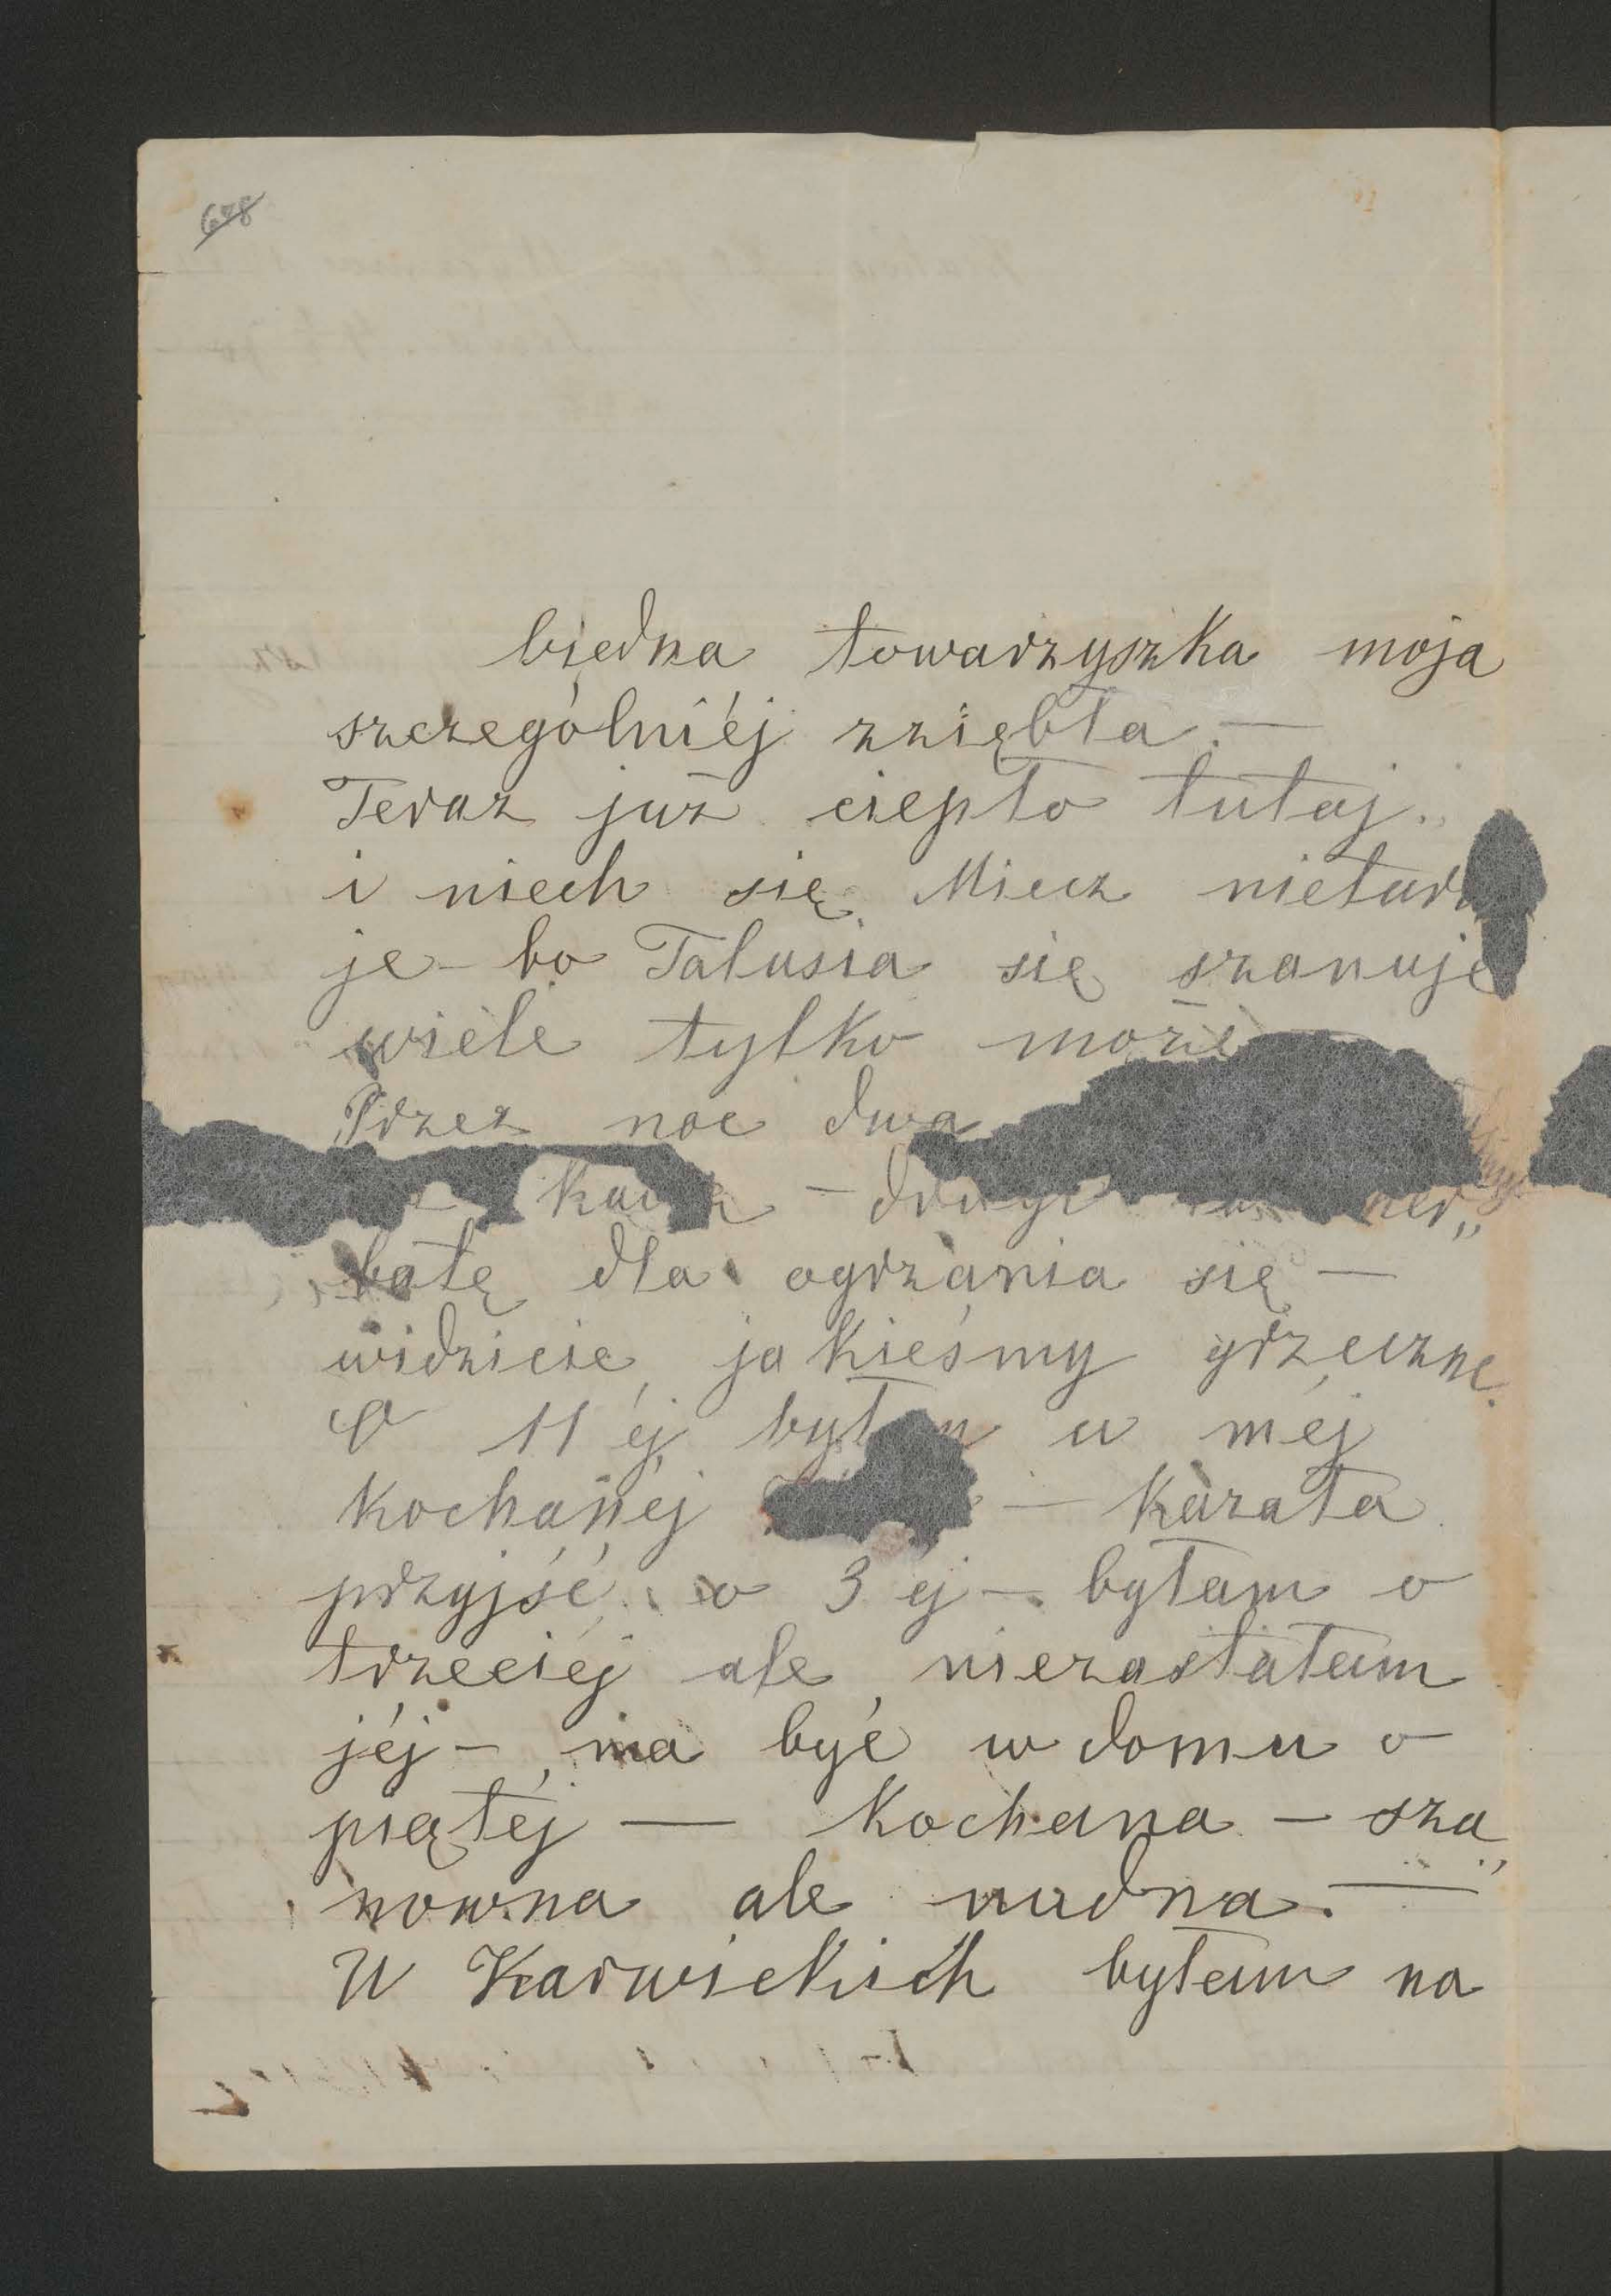 628
biedna towarzyszka moja
szczególniéj zziębła. —
Teraz już ciepło tutaj.
i niech się Miecz
je – bo Talusia się szanuje
wiele tylko może
Przez noc dwa
batę dla ogrzania się —
widzicie jakieśmy grzeczne.
O 11 éj byłam u méj
kochanéj — kazała
przyjść o 3 éj – byłam o
trzeciéj ale niezastałam
jéj – ma być w domu o
piątéj — kochana – sza„
nowna ale nudna. —
U Karwickich byłam na